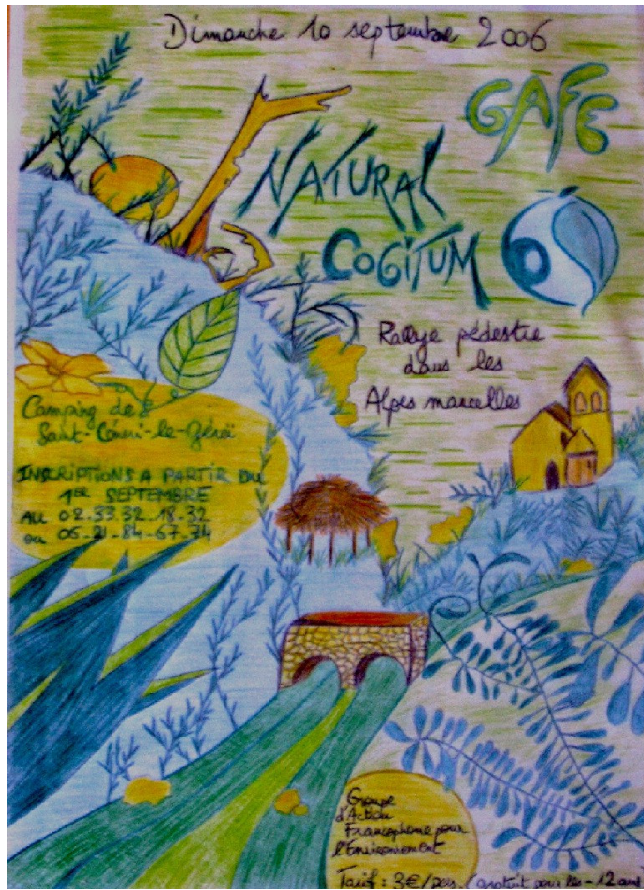 Dimanche 10 septembre 2006
GAFE
NATURAL
COGITUM
Rallye pédestre
dans les
Alpes mancelles
Camping de
Saint-Céneri-le-Gérei
INSCRIPTIONS A PARTIR DU
1ER SEPTEMBRE
AU 02.33.32.18.32
ou 06-21-84-67-74
Groupe
d'Action
Francophone pour
l'Environnement
Tarif : 3€/pers (gratuit pour les - 12 ans